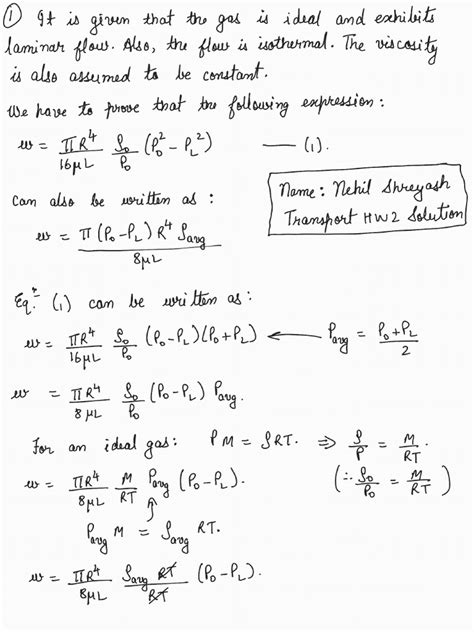 ① It is given that the gas is ideal and exhibits
laminar flow. Also, the flow is isothermal. The viscosity
is also assumed to be constant.
We have to prove that the following expression:
w = πR⁴/16μL ρ₀/P₀ (P₀² - P_L²) —— (1).
Name: Nehil Shreyash
Transport HW2 Solution
can also be written as:
w = π (P₀-P_L) R⁴ ρavg / 8μL
Eqⁿ (1) can be written as:
w = πR⁴/16μL ρ₀/P₀ (P₀-P_L)(P₀+P_L) ← Pavg = P₀+P_L / 2
w = πR⁴/8μL ρ₀/P₀ (P₀-P_L) Pavg.
For an ideal gas: PM = ρRT. ⇒ ρ/P = M/RT.
w = πR⁴/8μL M/RT Pavg (P₀-P_L). (∴ ρ₀/P₀ = M/RT)
Pavg M = ρavg RT.
w = πR⁴/8μL ρavg RT/RT (P₀-P_L).